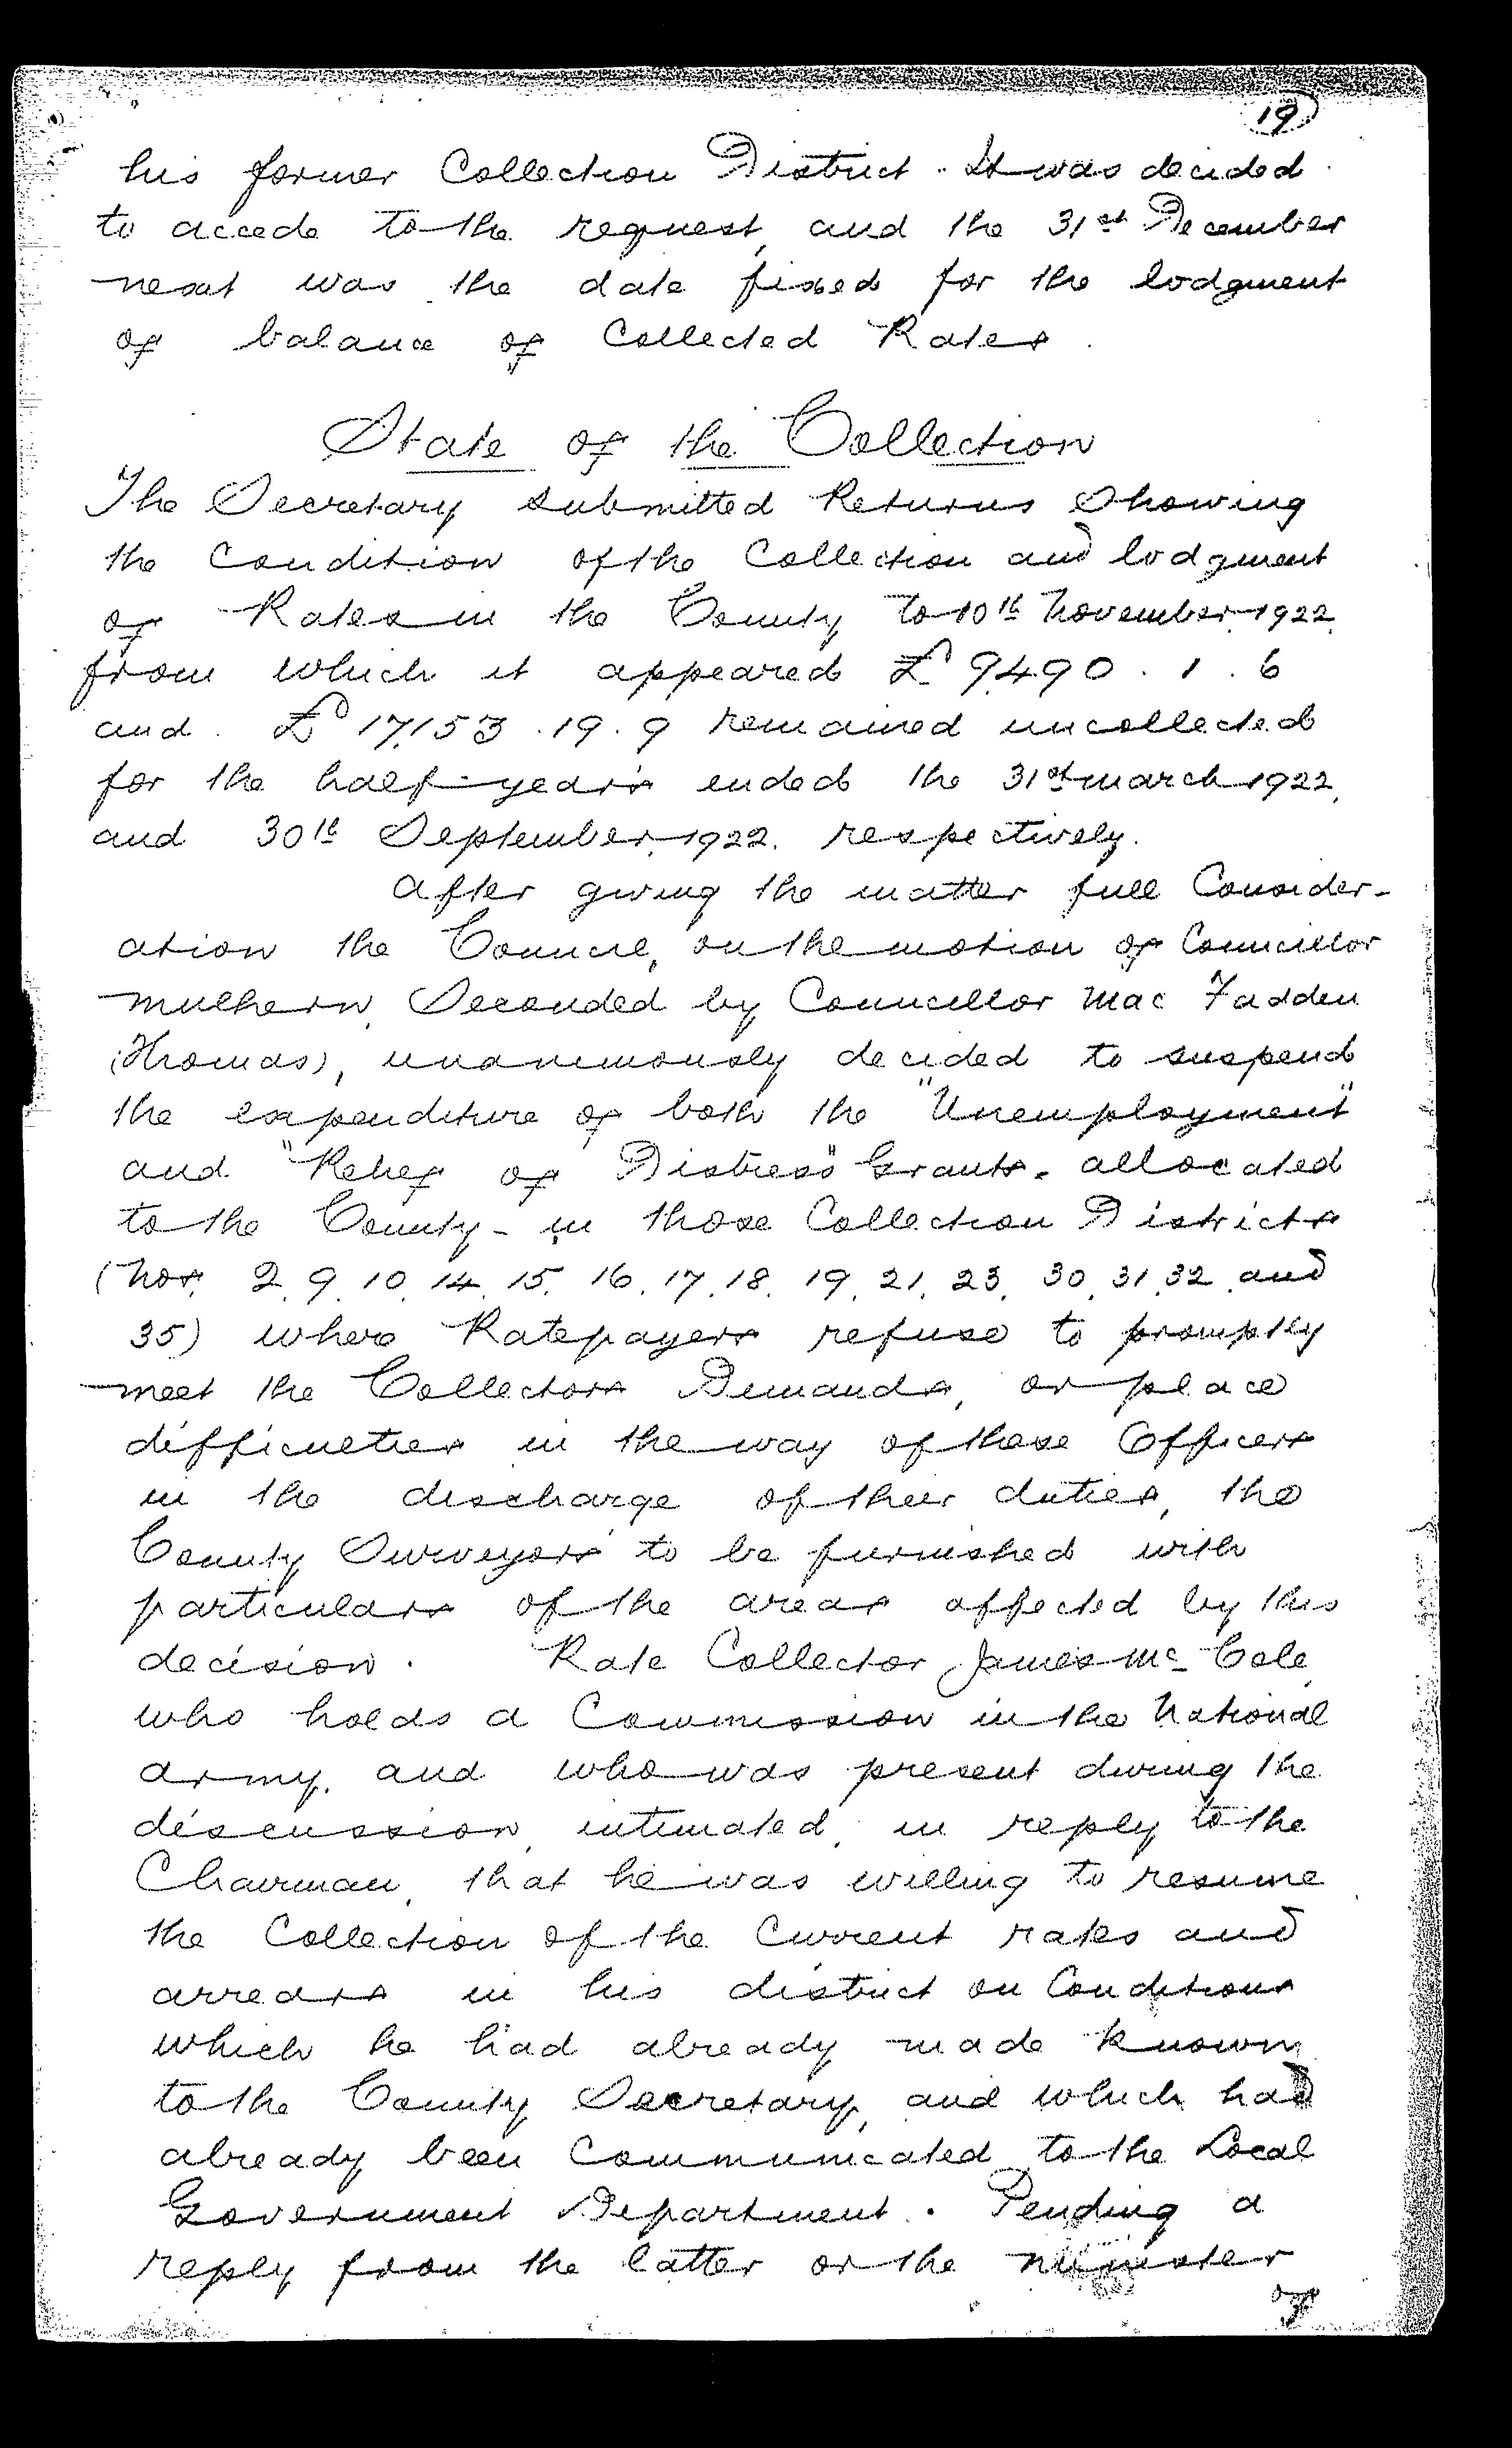 19
his former Collection District. It was decided
to accede to the request, and the 31st December
next was the date fixed for the lodgment
of balance of Collected Rates.
State of the Collection
The Secretary submitted Returns Showing
the Condition of the Collection and lodgment
of Rates in the County to 10th November, 1922,
from which it appeared £9490.1.6
and £17,153.19.9 remained uncollected
for the half-years ended the 31st March 1922,
and 30th September, 1922. respectively.
After giving the matter full Consider-
ation the Council, on the motion of Councillor
Mulhern, Seconded by Councillor Mac Fadden
(Thomas), unanimously decided to suspend
the expenditure of both the "Unemployment"
and "Relief of Distress" Grants - allocated
to the County - in those Collection Districts
(Nos. 2, 9, 10, 14, 15, 16, 17, 18, 19, 21, 23, 30, 31, 32, and
35) where Ratepayers refuse to promptly
meet the Collectors Demands, or place
difficulties in the way of these Officers
in the discharge of their duties, the
County Surveyors to be furnished with
particulars of the areas affected by this
decision. Rate Collector James Mc Cole,
who holds a Commission in the National
Army, and who was present during the
discussion, intimated, in reply to the
Chairman, that he was willing to resume
the Collection of the Current rates and
arrears in his district on Conditions
which he had already made known
to the County Secretary, and which had
already been Communicated to the Local
Government Department. Pending a
reply from the latter or the Minister
of